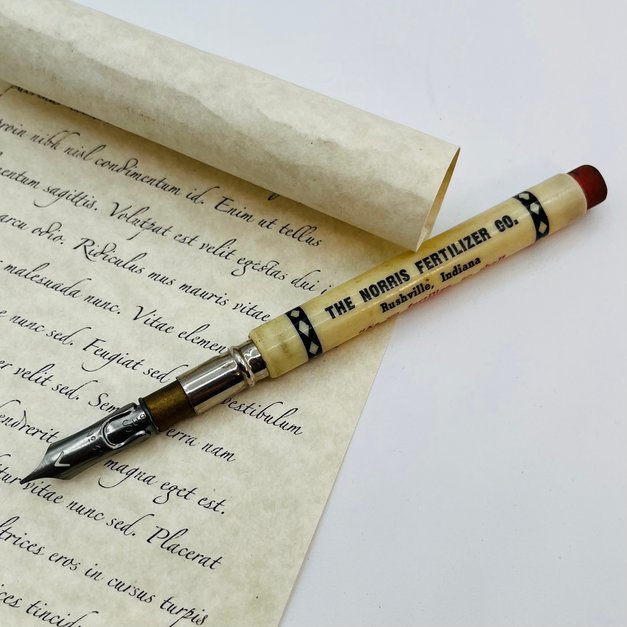 proin nibh nisl condimentum id. Enim ut tellus
mentum sagittis. Volutpat est velit egestas dui i
arcu odio. Ridiculus mus mauris vitae
malesuada nunc. Vitae elemen
e nunc sed. Feugiat sed
er velit sed. Sem vestibulum
endrerit erra nam
magna eget est.
tur vitae nunc sed. Placerat
trices eros in cursus turpis
ces tincid
THE NORRIS FERTILIZER CO.
Rushville, Indiana